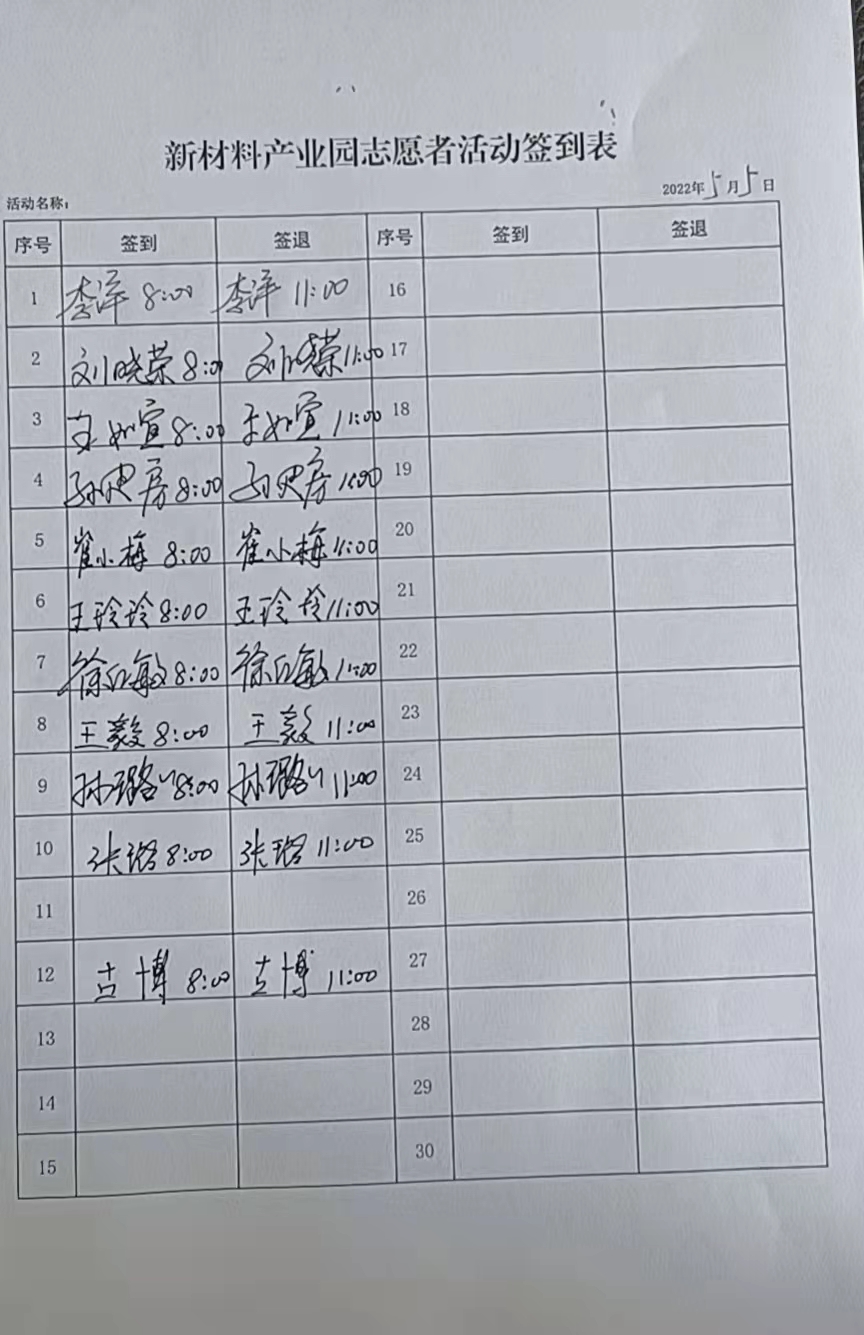 新材料产业园志愿者活动签到表
2022年5月5日
活动名称：
序号 签到 签退 序号 签到 签退
1 李洋 8:00 李洋 11:00 16
2 刘晓荣 8:00 刘晓荣 11:00 17
3 王如宣 8:00 王如宣 11:00 18
4 8:00 11:00 19
5 崔小梅 8:00 崔小梅 11:00 20
6 王玲玲 8:00 王玲玲 11:00 21
7 8:00 11:00 22
8 王毅 8:00 王毅 11:00 23
9 孙璐 8:00 孙璐 11:00 24
10 张璐 8:00 张璐 11:00 25
11 26
12 吉博 8:00 吉博 11:00 27
13 28
14 29
15 30